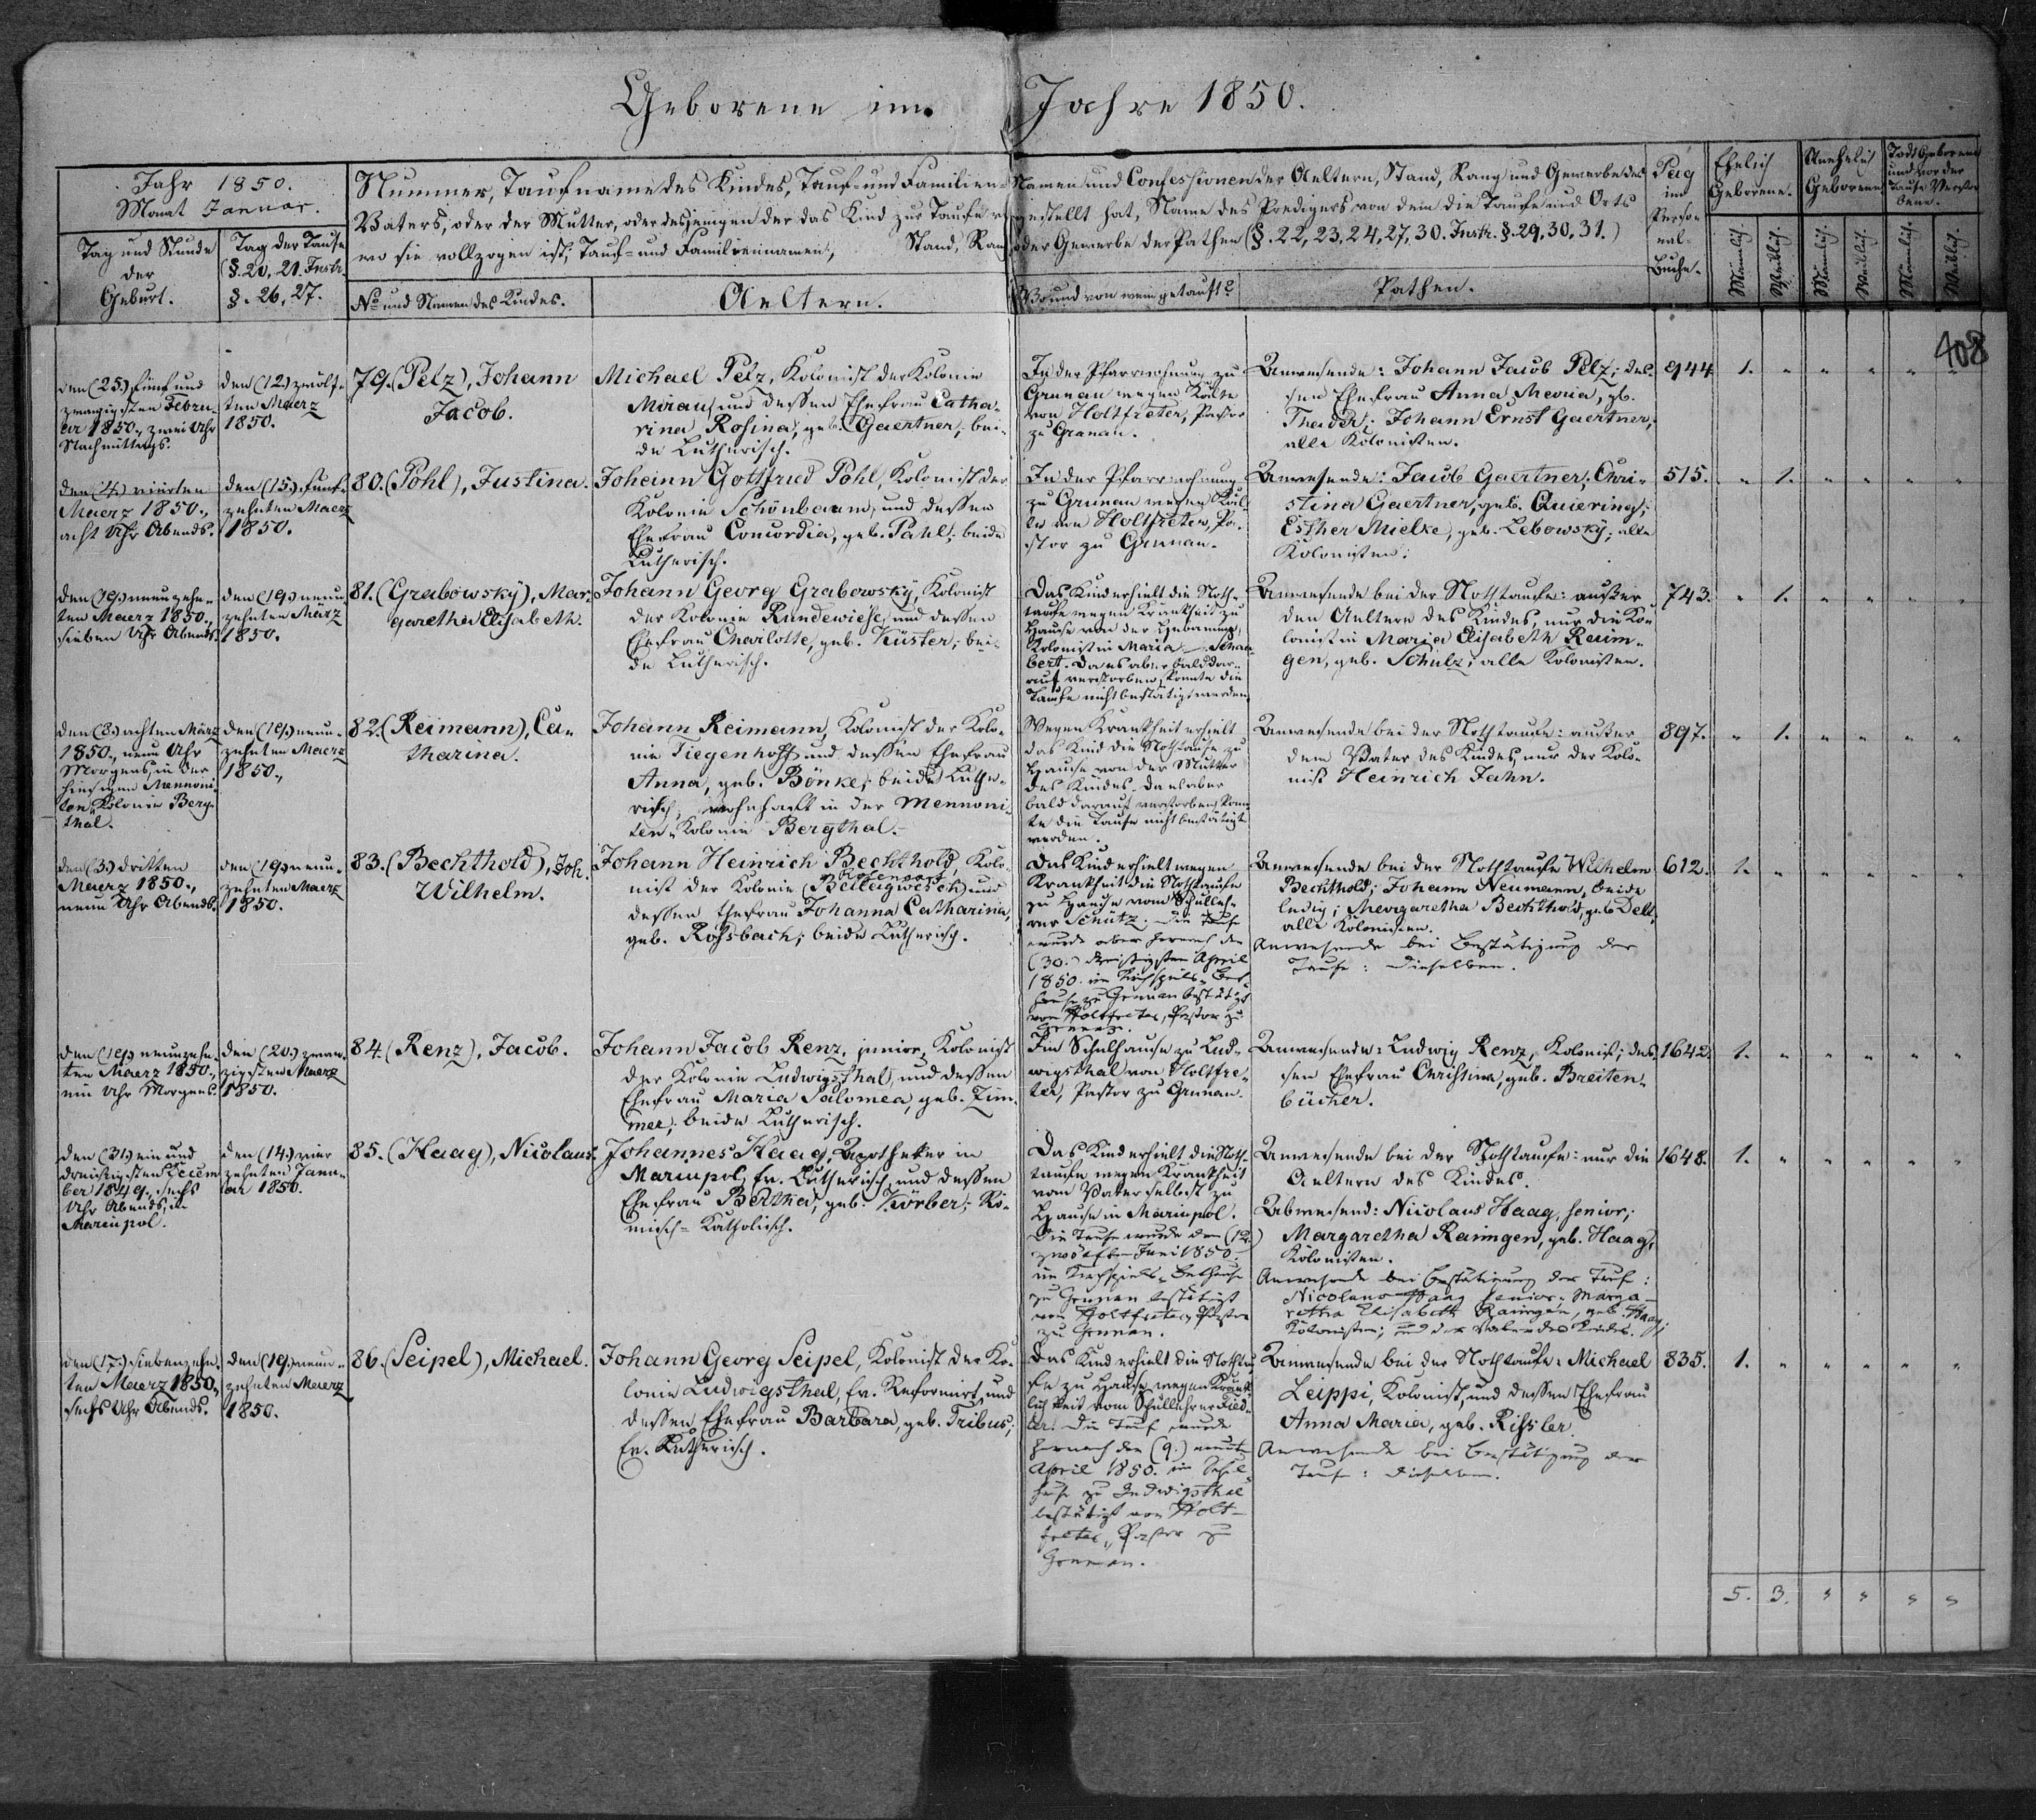 Geborene im Jahre 1850.
408
Jahr 1850.
Monat Januar.
Tag und Stunde
der
Geburt.
Tag der Taufe
(§. 20, 21. Instr.
§. 26, 27.
Nummer, Taufname des Kindes, Tauf- und Familien- Namen und Confessionen der Aeltern, Stand, Rang und Gewerbe des
Vaters, oder der Mutter, oder desjenigen der das Kind zur Taufe vorgestellt hat, Name des Predigers von dem die Taufe und Orts
wo sie vollzogen ist, Tauf- und Familiennamen, Stand, Rang oder Gewerbe der Pathen (§. 22, 23, 24, 27, 30. Instr. §. 29, 30, 31.)
No und Namen des Kindes.
Aeltern.
Wo und von wem getauft?
Pathen.
Pag
im
Perso-
nal-
Buche.
Ehelich
Geborene.
Unehelich
Geborene
Todt Geborene
und vor der
Taufe Verstor
bene.
Männlich.
Weiblich.
Männlich.
Weiblich.
Männlich.
Weiblich.
den (25.) fünf und
zwanzigsten Febru-
ar 1850., zwei Uhr
Nachmittags.
den (12.) zwölf-
ten Maerz
1850.
79. (Pelz), Johann
Jacob.
Michael Pelz, Kolonist der Kolonie
Mirau, und dessen Ehefrau Catha-
rina Rosina, geb. Gaertner; bei-
de Lutherisch.
In der Pfarrwohnung zu
Grunau wegen Kälte
von Holtfreter, Pastor
zu Grunau.
Anwesende: Johann Jacob Pelz; des-
sen Ehefrau Anna Maria, gb.
Johann Ernst Gaertner;
alle Kolonisten.
944.
1. " " " " "
den (4.) vierten
Maerz 1850.,
acht Uhr Abends.
den (15.) fünf-
zehnten Maerz
1850.
80. (Pohl), Justina.
Johann Gottfried Pohl, Kolonist der
Kolonie Schönbaum, und dessen
Ehefrau Concordia, geb. Pahl; beide
Lutherisch.
In der Pfarrwohnung
zu Grunau wegen Käl-
te von Holtfreter, Pa-
stor zu Grunau.
Anwesende: Jacob Gaertner; Chri-
stina Gaertner, geb. Quiering;
Esther Mielke, geb. Lebowsky; alle
Kolonisten.
515.
" 1. " " " "
den (19.) neunzehn-
ten Maerz 1850.,
sieben Uhr Abends.
den (19.) neun-
zehnten März
1850.
81. (Grabowsky), Mar-
garetha Elisabeth.
Johann Georg Grabowsky, Kolonist
der Kolonie Rundewiese, und dessen
Ehefrau Charlotte, geb. Küster; bei-
de Lutherisch.
Das Kind erhielt die Noth-
taufe wegen Krankheit zu
Hause von der Hebamme,
Kolonistin Maria Schau-
bert. Da es aber bald dar-
auf verstorben, konnte die
Taufe nicht bestätigt werden.
Anwesende bei der Nothtaufe: außer
den Aeltern des Kindes, nur die Ko-
lonistin Maria Elisabeth Reim-
gen, geb. Schulz; alle Kolonisten.
743.
" 1. " " " "
den (8.) achten März
1850., neun Uhr
Morgens, in der
hiesigen Mennoni-
ten-Kolonie Berg-
thal.
den (19.) neun-
zehnten Maerz
1850.,
82. (Reimann), Ca-
tharina.
Johann Reimann, Kolonist der Kolo-
nie Tiegenhoff und dessen Ehefrau
Anna, geb. Bönke; beide Luthe-
risch; wohnhaft in der Mennoni-
ten-Kolonie Bergthal.
Wegen Krankheit erhielt
das Kind die Nothtaufe zu
Hause von der Mutter
des Kindes. Da es aber
bald darauf verstorben, konn-
te die Taufe nicht bestätigt
werden.
Anwesende bei der Nothtaufe: außer
dem Vater des Kindes, nur der Kolo-
nist Heinrich Jahn.
897.
" 1. " " " "
den (3.) dritten
Maerz 1850.,
neun Uhr Abends.
den (19.) neun-
zehnten Maerz
1850.
83. (Bechthold), Joh.
Wilhelm.
Johann Heinrich Bechthold, Kolo-
Rosengart
nist der Kolonie (Bellagwesch) und
dessen Ehefrau Johanna Catharina,
geb. Rossbach; beide Lutherisch.
Das Kind erhielt wegen
Krankheit die Nothtaufe
zu Hause vom Schulleh-
rer Schütz. Die Taufe
wurde aber hernach den
(30.) dreißigsten April
1850. im Kirchspiels-Bet-
hause zu Grunau bestätigt
von Holtfreter, Pastor zu
Grunau.
Anwesende bei der Nothtaufe Wilhelm
Bechthold; Johann Neumann, beide
ledig; Margaretha Bechthold, geb. Dell;
alle Kolonisten.
Anwesende bei Bestätigung der
Taufe: dieselben.
612.
1. " " " " "
den (19.) neunzehn-
ten Maerz 1850.,
ein Uhr Morgens.
den (20.) zwan-
zigsten Maerz
1850.
84. (Renz), Jacob.
Johann Jacob Renz, junior, Kolonist
der Kolonie Ludwigsthal, und dessen
Ehefrau Maria Salomea, geb. Zim-
mer; beide Lutherisch.
Im Schulhause zu Lud-
wigsthal von Holtfre-
ter, Pastor zu Grunau.
Anwesende: Ludwig Renz, Kolonist; des-
sen Ehefrau Christina, geb. Breiten-
bücher.
1642.
1. " " " " "
den (31.) ein und
dreißigsten Decem
ber 1849., sechs
Uhr Abends, in
Mariupol.
den (14.) vier
zehnten Janu-
ar 1850.
85. (Haag), Nicolaus.
Johannes Haag, Apotheker in
Mariupol, Ev. Lutherisch und dessen
Ehefrau Bertha, geb. Körber; Rö-
misch-Katholisch.
Das Kind erhielt die Noth-
taufe wegen Krankheit
vom Vater selbst zu
Hause in Mariupol.
Die Taufe wurde den (12.)
zwölften Juni 1850.
im Kirchspiels-Bethause
zu Grunau bestätigt
von Holtfreter, Pastor
zu Grunau.
Anwesende bei der Nothtaufe: nur die
Aeltern des Kindes.
Abwesend: Nicolaus Haag, senior;
Margaretha Raimgen, geb. Haag,
Kolonisten.
Anwesende bei Bestätigung der Taufe:
Nicolaus Haag senior; Marga-
retha Elisabeth Raimgen, geb. Haag;
Kolonisten; und der Vater des Kindes.
1648.
1. " " " " "
den (17.) siebenzehn-
ten Maerz 1850.,
sechs Uhr Abends.
den (19.) neun-
zehnten Maerz
1850.
86. (Seipel), Michael.
Johann Georg Seipel, Kolonist der Ko-
lonie Ludwigsthal, Ev. Reformirt, und
dessen Ehefrau Barbara, geb. Tribus;
Ev. Lutherisch.
Das Kind erhielt die Nothtau
fe zu Hause wegen Kränk-
lichkeit vom Schullehrer Fied-
ler. Die Taufe wurde
hernach den (9.) neunten
April 1850. im Schul-
hause zu Ludwigsthal
bestätigt von Holt-
freter, Pastor zu
Grunau.
Anwesende bei der Nothtaufe: Michael
Leippi, Kolonist, und dessen Ehefrau
Anna Maria, geb. Rissler.
Anwesende bei Bestätigung der
Taufe: dieselben.
835.
1. " " " " "
5. 3. " " " "